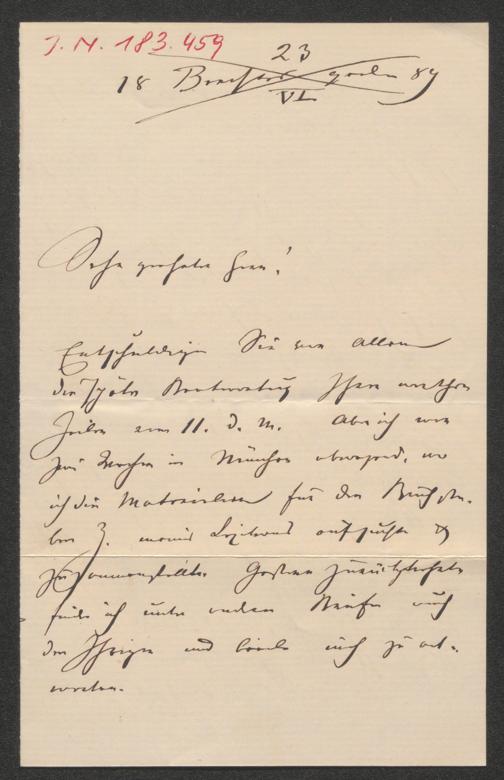 J. N. 183.459
23
18 89
VI
Sehr geehrter Herr!
Entschuldigen Sie vor Allem
die späte Beantwortung Ihrer werthen
Zeilen vom 11. d. M. Aber ich war
zwei Wochen in München abwesend, wo
ich die Materialien für den Buchsta-
ben Z. meines Lexikons aufsuchte &
zusammenstellte. Gestern zurückgekehrt
finde ich unter anderen Briefen auch
den Ihrigen und beeile mich zu ant-
worten.